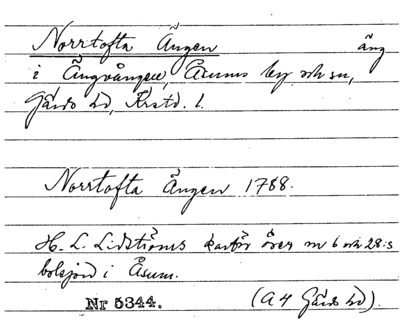 Norrtofta Ängen äng
i Ängvången, Åsums by och sn,
Gärds hd, Krstd. l.
Norrtofta Ängen 1788.
H. L. Lidströms kartor över n 6 och 28:s
bolsjord i Åsum.
Nr 5344. (A4 Gärds hd).